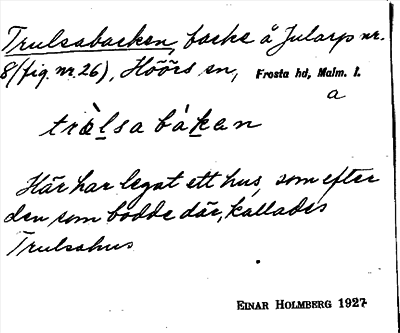 Trulsabacken, backe å Jularp nr.
8 (fig. nr. 26), Höörs sn, Frosta hd, Malm. l.
a
trùlsa bákan
Här har legat ett hus, som efter
den som bodde där, kallades
Trulsahus
EINAR HOLMBERG 1927